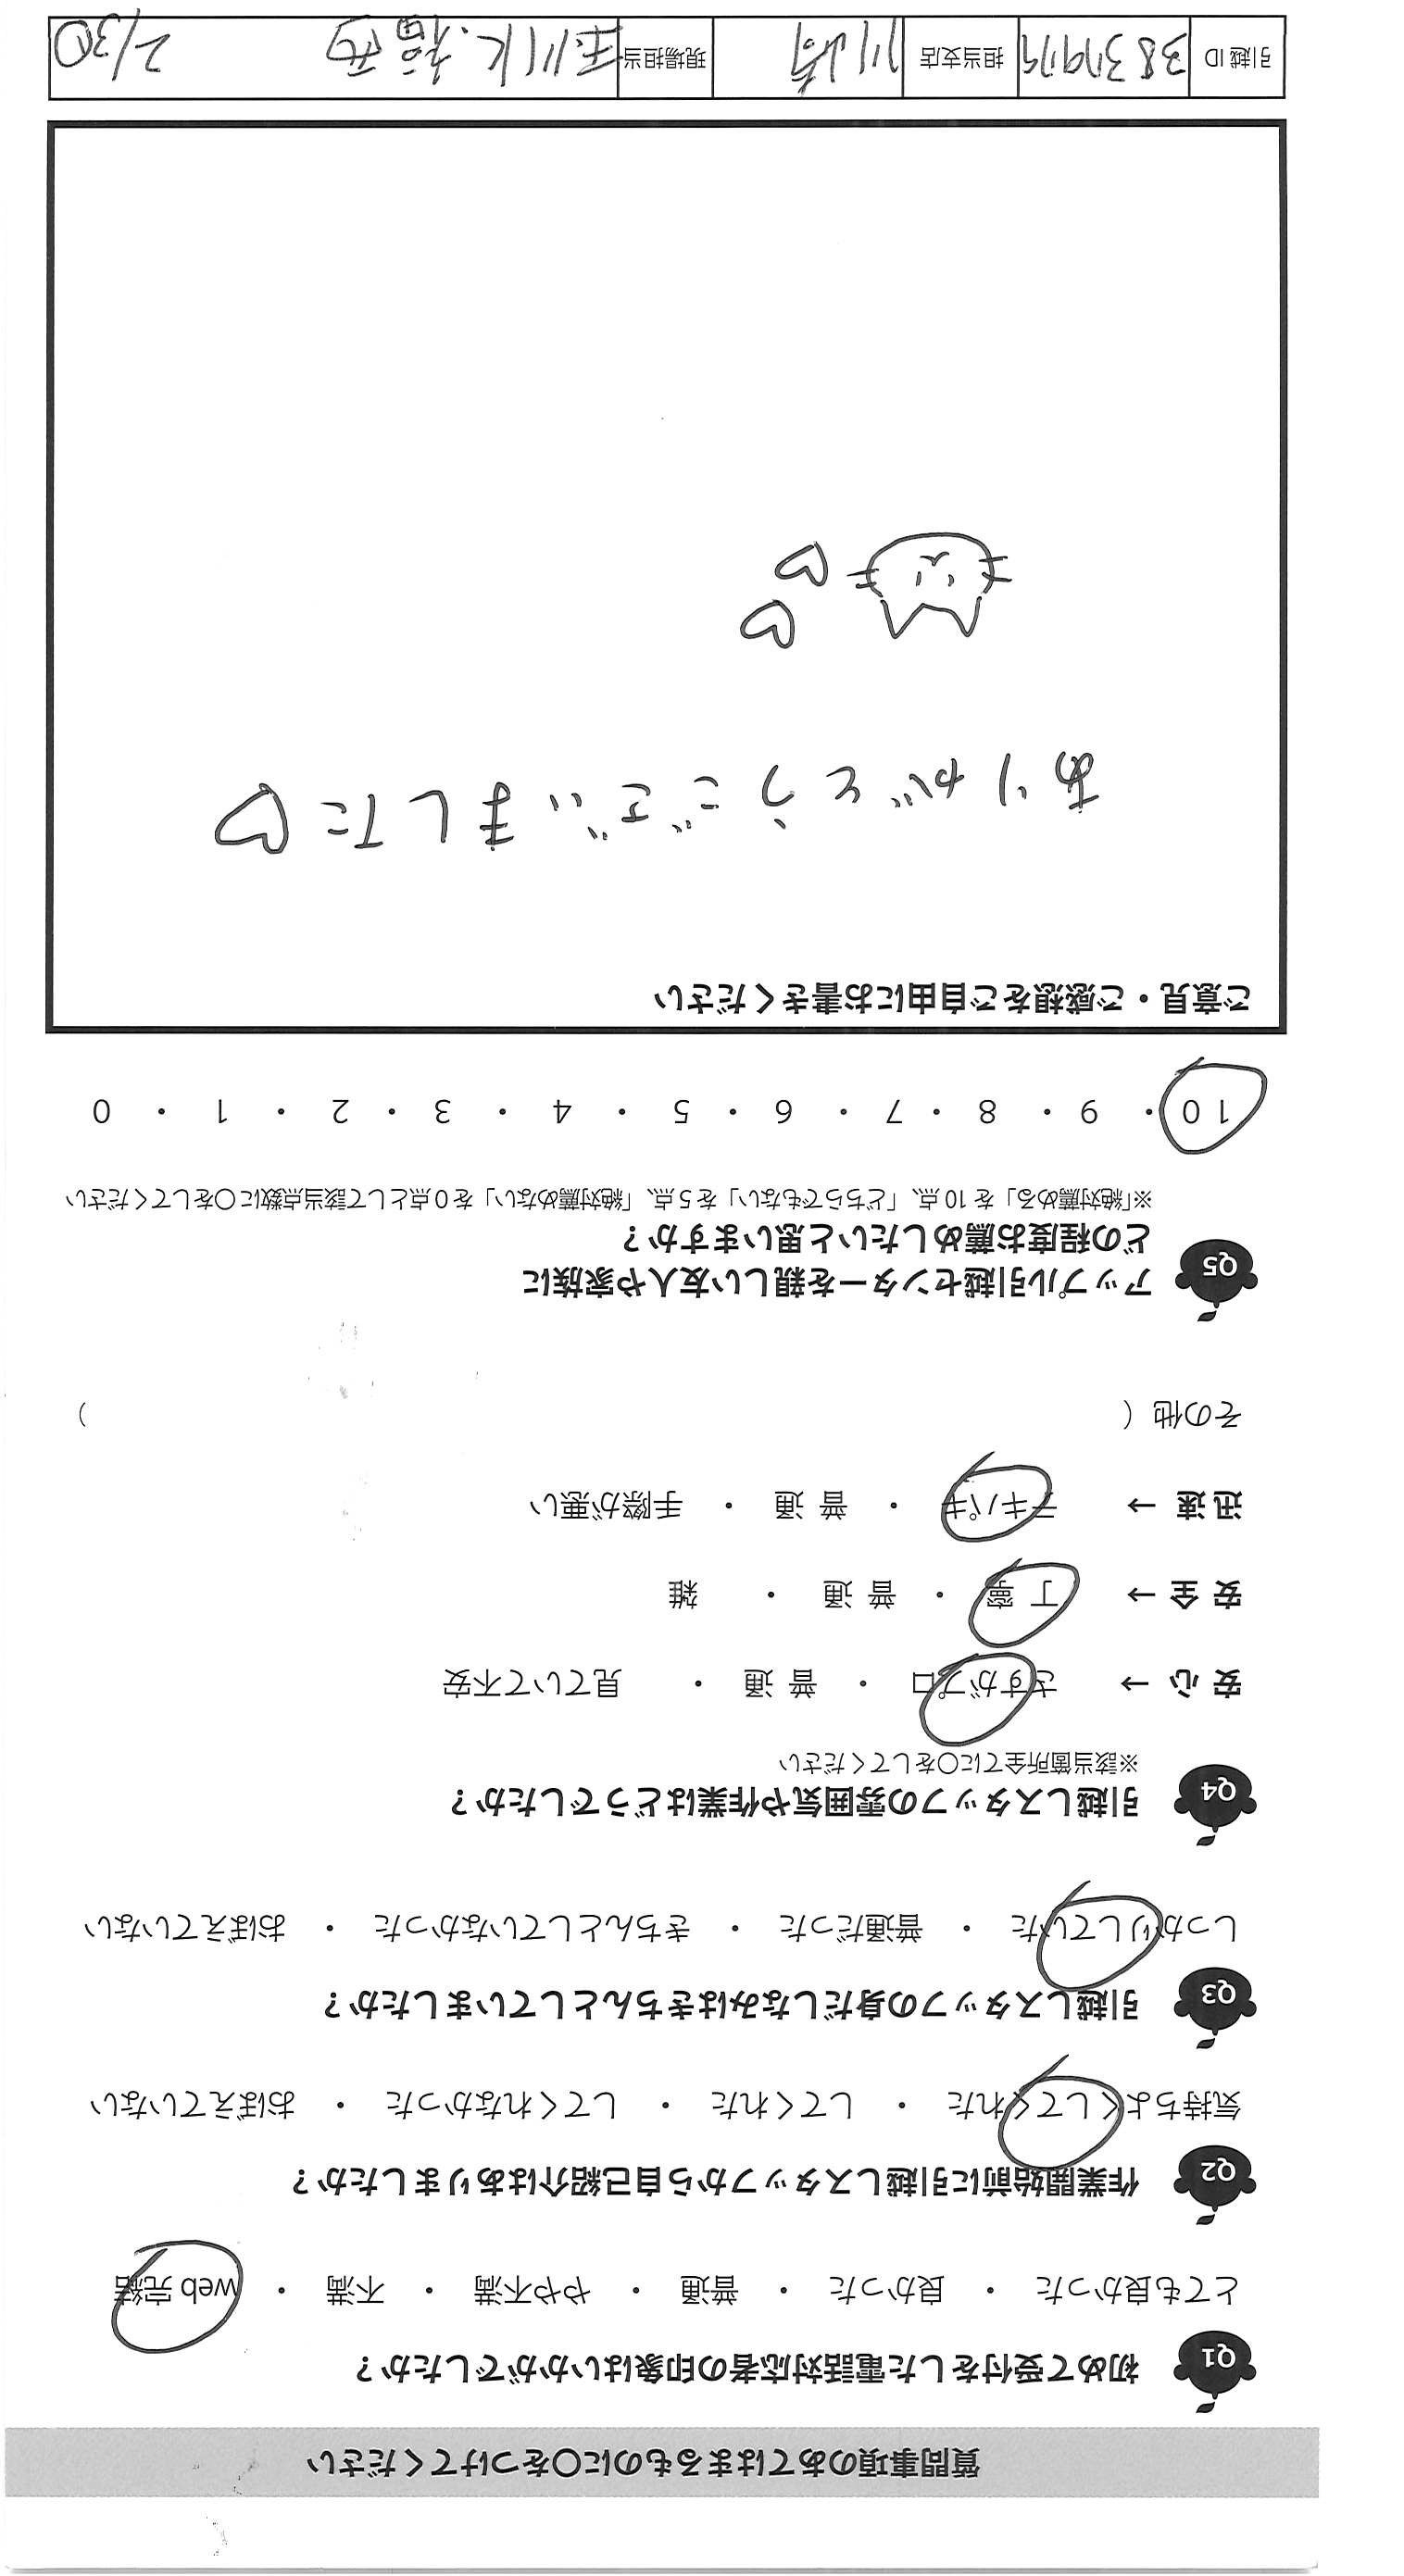 質問事項のあてはまるものに〇をつけてください
Q1 初めて受付をした電話対応者の印象はいかがでしたか？
とても良かった ・ 良かった ・ 普通 ・ やや不満 ・ 不満 ・ web 完結
Q2 作業開始前に引越しスタッフから自己紹介はありましたか？
気持ちよくしてくれた ・ してくれた ・ してくれなかった ・ おぼえていない
Q3 引越しスタッフの身だしなみはきちんとしていましたか？
しっかりしていた ・ 普通だった ・ きちんとしていなかった ・ おぼえていない
Q4 引越しスタッフの雰囲気や作業はどうでしたか？
※該当箇所全てに〇をしてください
安 心 → さすがプロ ・ 普 通 ・ 見ていて不安
安 全 → 丁 寧 ・ 普 通 ・ 雑
迅 速 → テキパキ ・ 普 通 ・ 手際が悪い
その他（ ）
Q5 アップル引越センターを親しい友人や家族に
どの程度お薦めしたいと思いますか？
※「絶対薦める」を 10 点、「どちらでもない」を 5 点、「絶対薦めない」を 0 点として該当点数に〇をしてください
10 ・ 9 ・ 8 ・ 7 ・ 6 ・ 5 ・ 4 ・ 3 ・ 2 ・ 1 ・ 0
ご意見・ご感想をご自由にお書きください
ありがとうございました♡
引越 ID 担当支店 川崎 現場担当 2/30